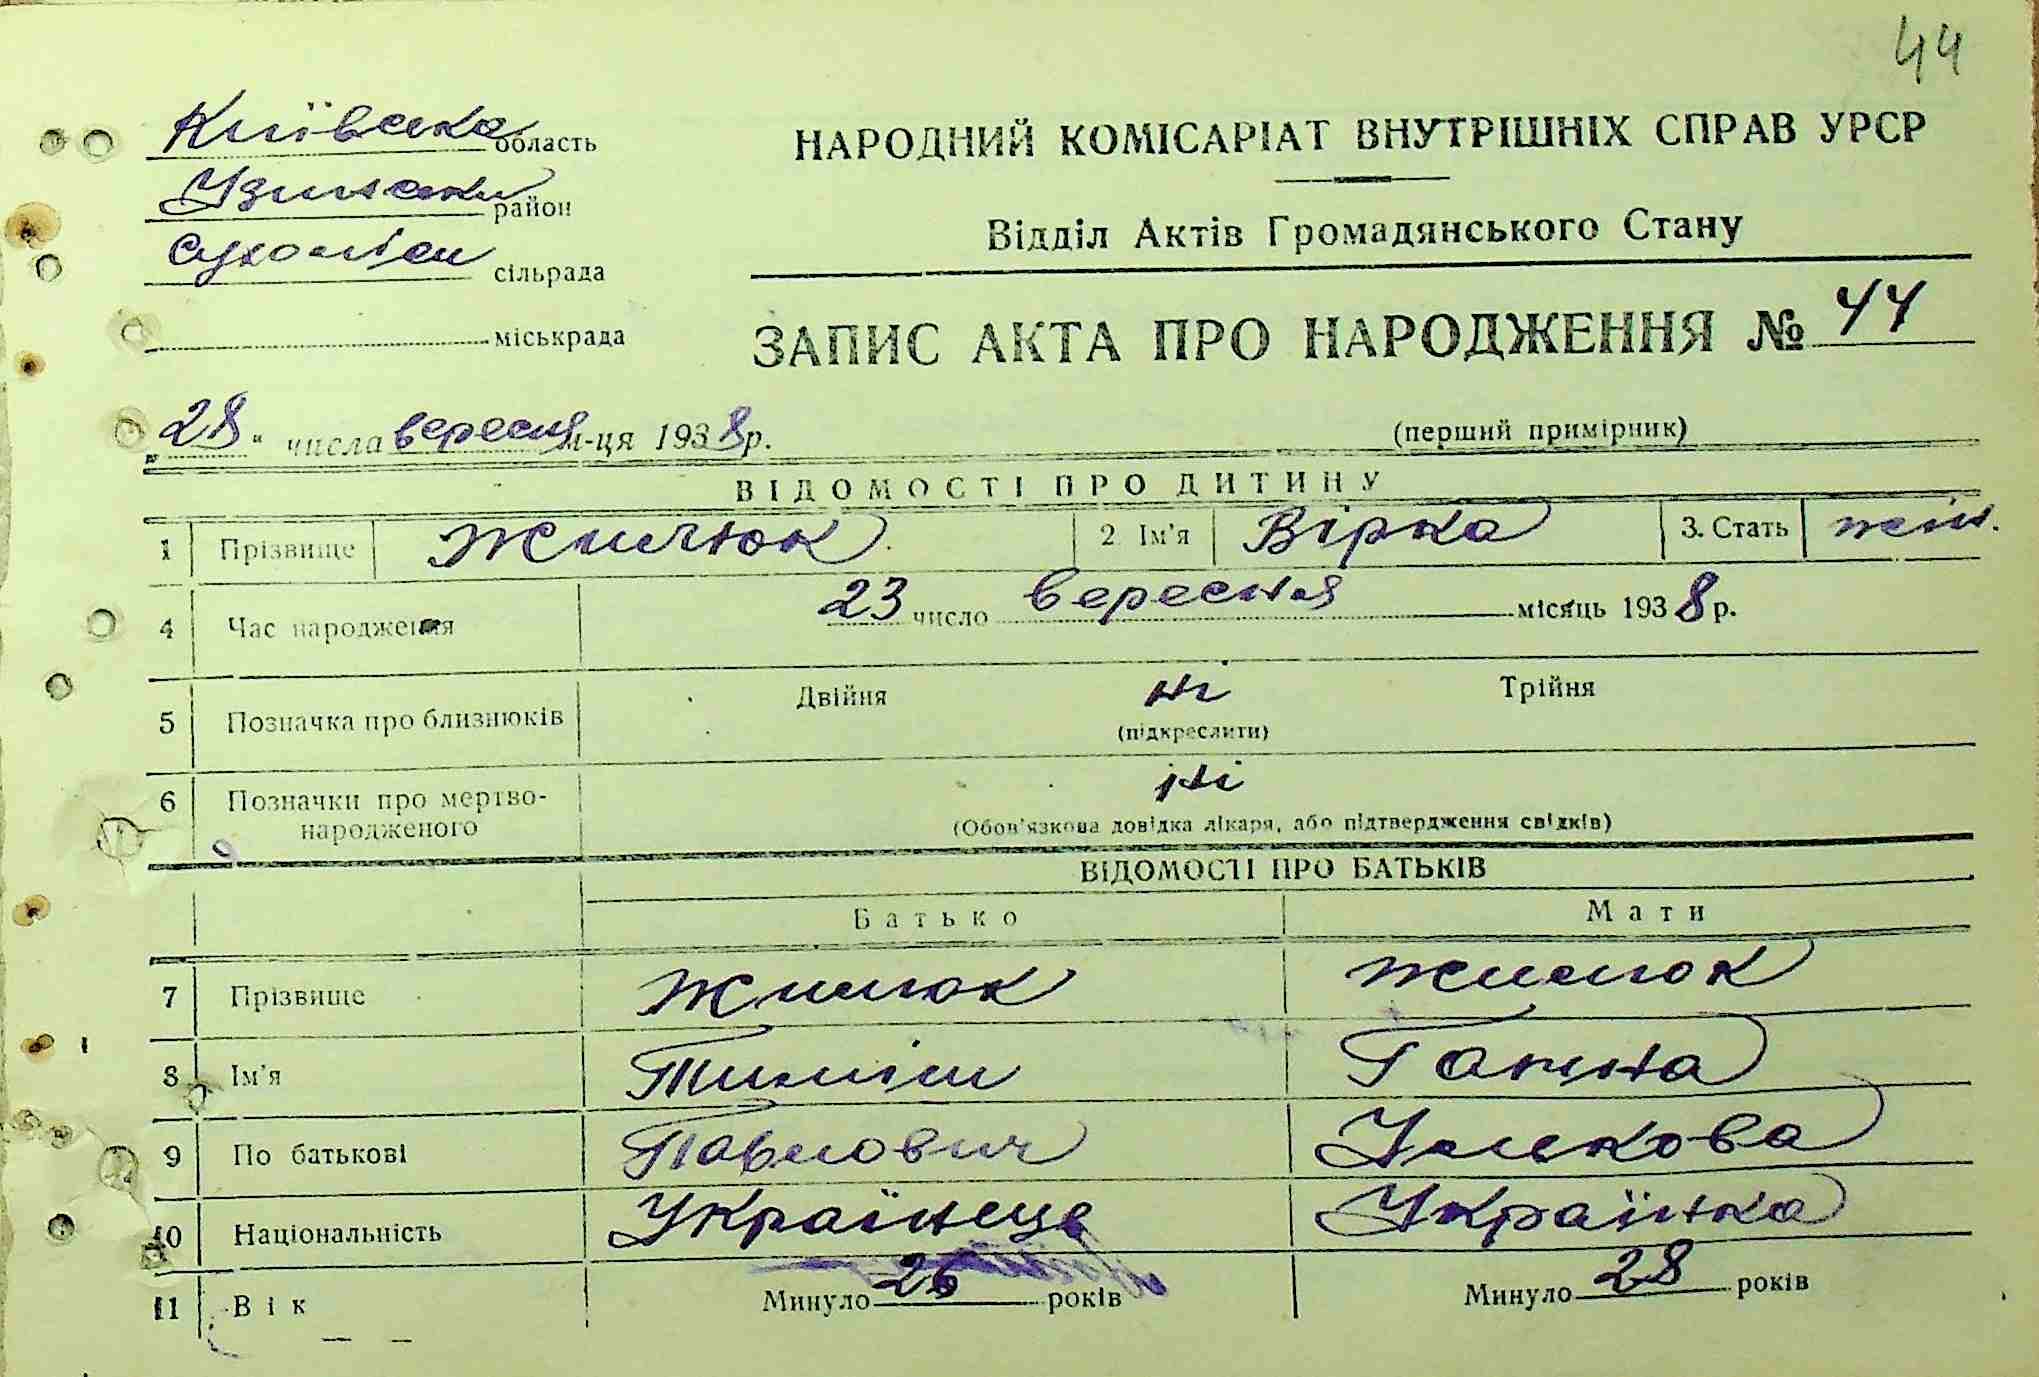 44
Київська область
НАРОДНИЙ КОМІСАРІАТ ВНУТРІШНІХ СПРАВ УРСР
Узинськи район
Відділ Актів Громадянського Стану
Сухоліси сільрада
ЗАПИС АКТА ПРО НАРОДЖЕННЯ № 44
міськрада
„28" числа вересня м-ця 1938 р.
(перший примірник)
ВІДОМОСТІ ПРО ДИТИНУ
1 Прізвище Жилюк 2 Ім'я Вірка 3. Стать жін.
4 Час народження 23 число вересня місяць 1938 р.
5 Позначка про близнюків Двійня ні Трійня
(підкреслити)
6 Позначки про мертво-народженого ні
(Обов'язкова довідка лікаря, або підтвердження свідків)
ВІДОМОСТІ ПРО БАТЬКІВ
Батько Мати
7 Прізвище Жилюк Жилюк
8 Ім'я Тиміш Ганна
9 По батькові Павлович Улькова
10 Національність Українець Українка
11 Вік Минуло 26 років Минуло 28 років